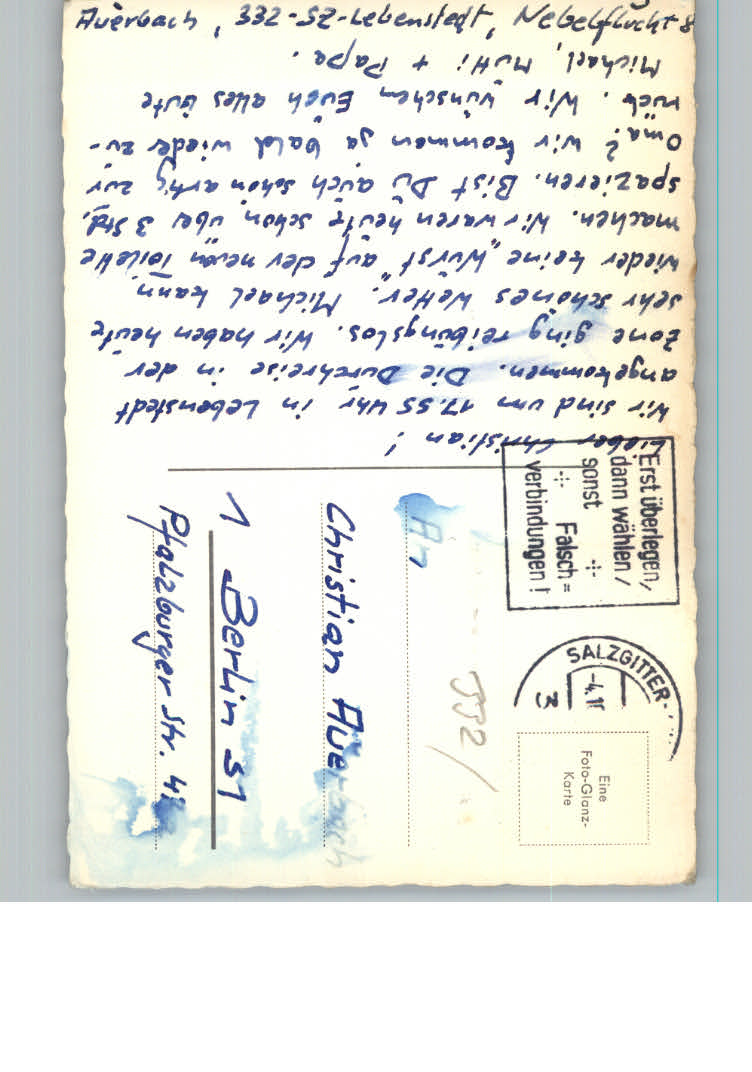 Auerbach, 332-SZ-Lebenstedt, Nebelflucht 8
Lieber Christian!
Wir sind um 17.55 Uhr in Lebenstedt
angekommen. Die Durchreise in der
Zone ging reibungslos. Wir haben heute
sehr schönes Wetter. Michael kann
wieder keine „Wurst" auf der neuen Toilette
machen. Wir waren heute schon über 3 Std.
spazieren. Bist Du auch schön artig zur
Oma? Wir kommen ja bald wieder zu-
rück. Wir wünschen Euch alles Gute
Michael, Mutti + Papa.
Erst überlegen,
dann wählen /
sonst Falsch=
verbindungen!
SALZGITTER-
-4.
3
Eine
Foto-Glanz-
Karte
552/
An
Christian Auerbach
1 Berlin 31
Pfalzburger Str.